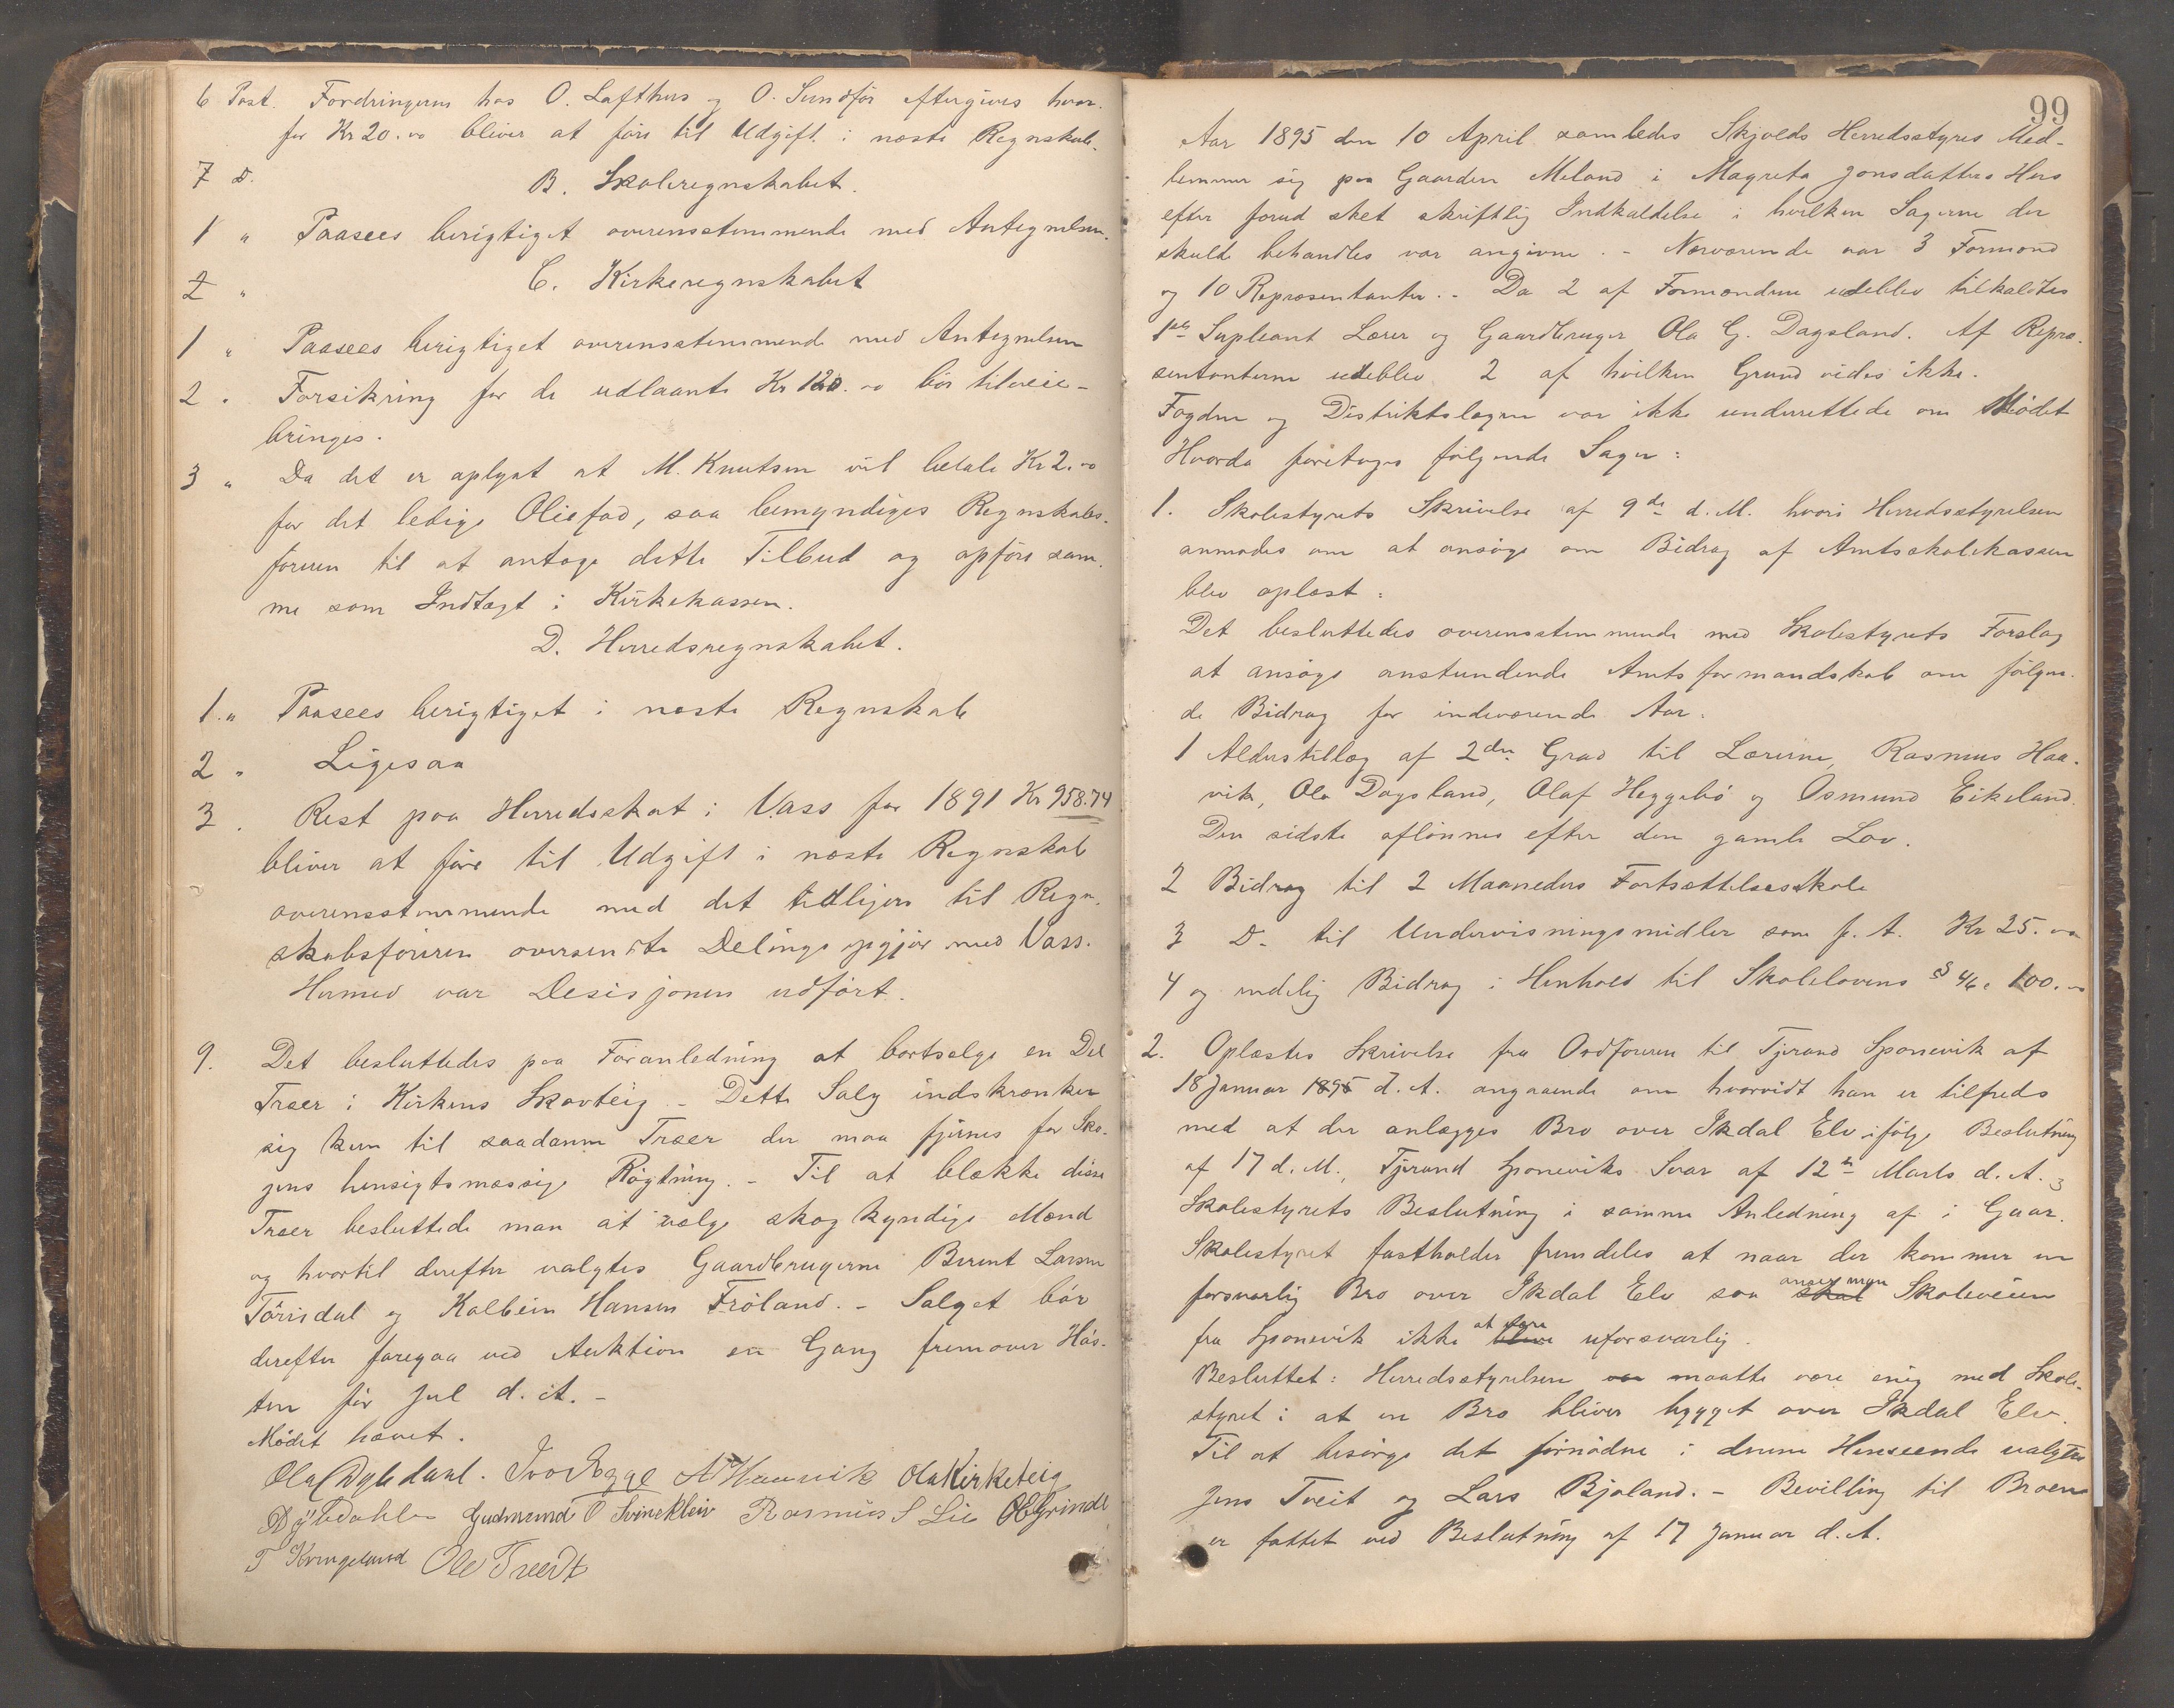 6 Post. Fordringerne hos O. Lofthus og O. Sundför eftergives hvor-
for Kr 20.00 bliver at före til Udgift i næste Regnskab.
7 D.
B. Skoleregnskabet.
1 " Paasees berigtiget overensstemmende med Antegnelsen.
2 "
C. Kirkeregnskabet
1 " Paasees berigtiget overensstemmende med Antegnelsen
2 " Forsikring for de udlaante Kr 120.00 bör tilveie-
bringes.
3 " Da det er oplyst at M. Knutsen vil betale Kr 2.00
for det ledige Oliefad, saa bemyndiges Regnskabs-
föreren til at antage dette Tilbud og opföre sam-
me som Indtægt i Kirkekassen.
D. Herredsregnskabet.
1. " Paasees berigtiget i næste Regnskab
2 " Ligesaa
3 . Rest paa Herredsskat i Vass for 1891 Kr 958.74
bliver at före til Udgift i næste Regnskab
overensstemmende med det tidligere til Regn-
skabsföreren oversendte Delingsopgjör med Vass.
Hermed var Desisjonen udfört.
9. Det besluttedes paa Foranledning at bortsælge en Del
Træer i Kirkens Skovteig - Dette Salg indskrænker
sig kun til saadanne Træer der maa fjernes for Sko-
gens hensigtsmæssige Rögtning. - Til at blække disse
Træer besluttede man at vælge skogkyndige Mænd
og hvortil derefter valgtes Gaardbrugerne Berent Larsen
Törisdal og Kolbein Hansen Fröland. - Salget bör
derefter foregaa ved Auktion en Gang fremover Hös-
ten för Jul d. A. -
Mödet hævet.
Ola Ohlsdahl. Ivar Egge A Haavik Ola Kirketeig
Gudmund O Svineklev Rasmus S Lie Ol Grinde
T Kringeland Ole Tveedt
99
Aar 1895 den 10 April samledes Skjolds Herredsstyres Med-
lemmer sig paa Gaarden Meland i Magreta Jonsdatters Hus
efter forud sket skriftlig Indkaldelse i hvilken Sagerne der
skulde behandles var angivne. - Nærværende var 3 Formænd
og 10 Repræsentanter. - Da 2 af Formændene udeblev tilkaldtes
1ste Supleant Lærer og Gaardbruger Ola G. Dagsland. Af Repræ-
sentanterne udeblev 2 af hvilken Grund vides ikke.
Fogden og Distriktslægen var ikke underrettede om Mödet
Hvorda foretoges fölgende Sager:
1. Skolestyrets Skrivelse af 9de d. M. hvori Herredsstyrelsen
anmodes om at ansöge om Bidrag af Amtsskolekassen
blev oplæst:
Det besluttedes overensstemmende med Skolestyrets Forslag
at ansöge anstundende Amtsformandskab om fölgen-
de Bidrag for indeværende Aar:
1 Alderstillæg af 2den Grad til Lærerne, Rasmus Haa-
vik, Ola Dagsland, Olaf Heggebö og Osmund Eikeland.
Den sidste aflönnes efter den gamle Lov.
2 Bidrag til 2 Maaneders Fortsættelsesskole
3 D. til Undervisningsmidler som f. A. Kr 25.00
4 og endelig Bidrag i Henhold til Skolelovens § 46 100.00
2. Oplæstes Skrivelse fra Ordföreren til Tjerand Sponevik af
18 Januar 1895 d. A. angaaende om hvorvidt han er tilfreds
med at der anlægges Bro over Ikdal Elv ifölge Beslutning
af 17 d. M., Tjerand Sponeviks Svar af 12te Marts d. A. og
Skolestyrets Beslutning i samme Anledning af i Gaar.
Skolestyret fastholder fremdeles at naar der kommer en
forsvarlig Bro over Ikdal Elv saa skal anser man Skoleveien
fra Sponevik ikke blive at være uforsvarlig.
Besluttet: Herredsstyrelsen var maatte være enig med Skole-
styret i at en Bro bliver bygget over Ikdal Elv.
Til at besörge det fornödne i denne Henseende valgtes
Jens Tveit og Lars Bjoland. - Bevilling til Broen
er fattet ved Beslutning af 17 Januar d. A.